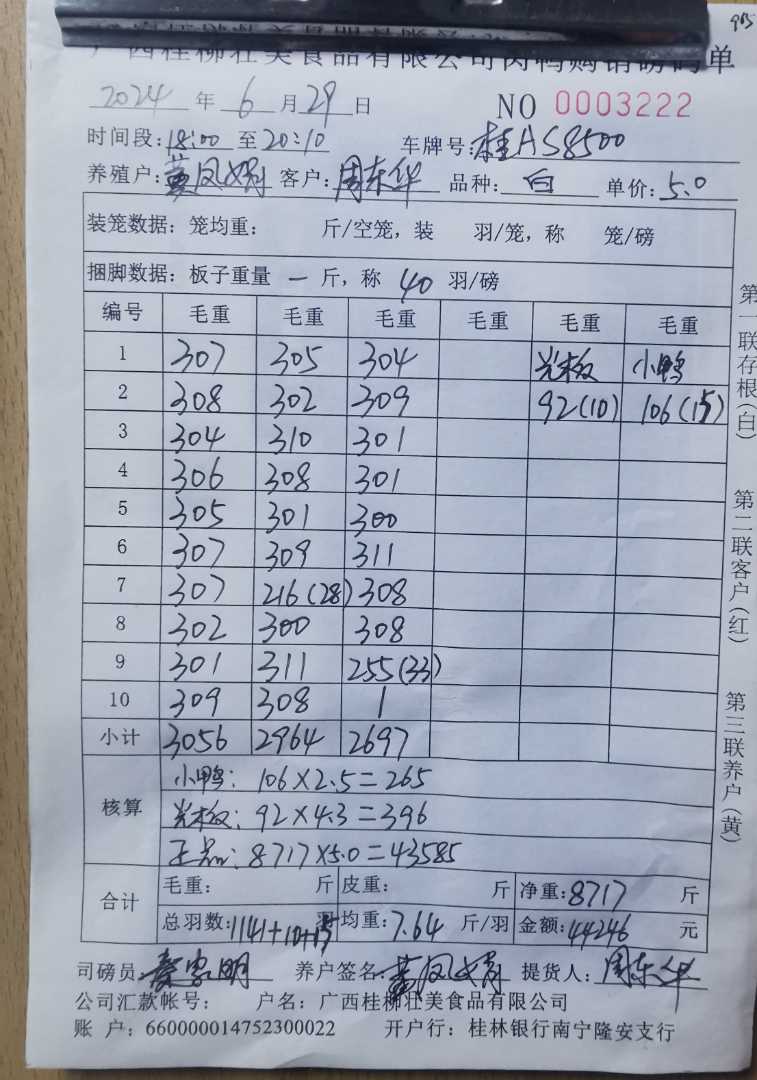 广西桂柳壮美食品有限公司肉鸭购销磅码单
2024 年 6 月 29 日 NO 0003222
时间段: 18:00 至 20:10 车牌号: 桂AS8500
养殖户: 黄凤娟 客户: 周东华 品种: 白 单价: 5.0
装笼数据: 笼均重: 斤/空笼, 装 羽/笼, 称 笼/磅
捆脚数据: 板子重量 一 斤, 称 40 羽/磅
编号 毛重 毛重 毛重 毛重 毛重 毛重
1 307 305 304 光板 小鸭
2 308 302 309 92(10) 106(15)
3 304 310 301
4 306 308 301
5 305 301 300
6 307 309 311
7 307 216(28) 308
8 302 300 308
9 301 311 255(33)
10 309 308 1
小计 3056 2964 2697
核算
小鸭: 106×2.5=265
光板: 92×4.3=396
正品: 8717×5.0=43585
合计
毛重: 斤 皮重: 斤 净重: 8717 斤
总羽数: 1141+10+15 羽 均重: 7.64 斤/羽 金额: 44246 元
司磅员 秦家明 养户签名 黄凤娟 提货人: 周东华
公司汇款帐号: 户名: 广西桂柳壮美食品有限公司
账 户: 660000014752300022 开户行: 桂林银行南宁隆安支行
第一联存根(白)
第二联客户(红)
第三联养户(黄)